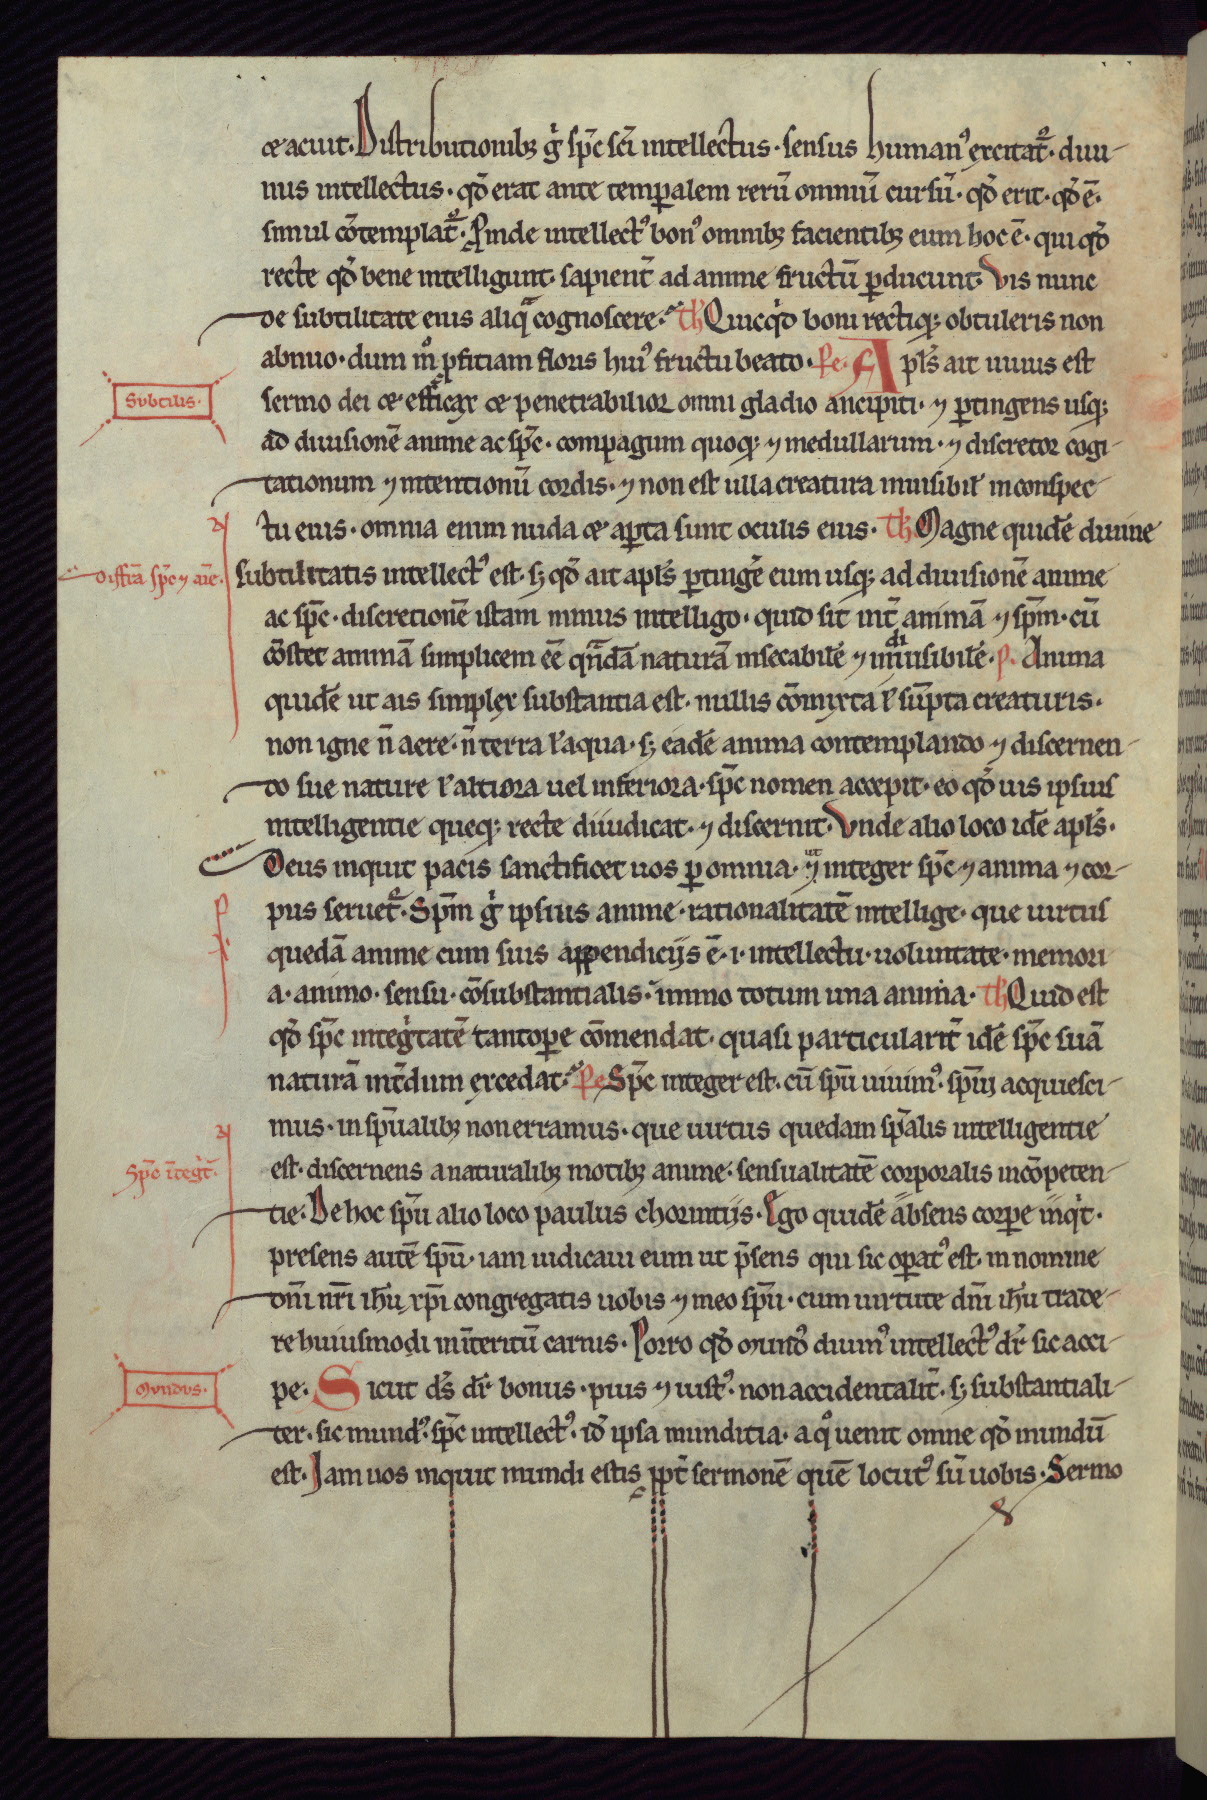 ceacuit. Distributionibꝫ g̊ sp̄c sc̄i intellectus. sensus humanꝰ excitat̄. diui-
nus intellectus. qd̄ erat ante temꝑalem rerū omniū cursū. qd̄ erit. qd̄ ē.
simul cōtemplat̄. Proinde intellectꝰ bonꝰ omnibꝫ facientibꝫ eum hoc ē. qui qd̄
recte qd̄ bene intelligunt. sapient̄ ad anime fructū ꝑducunt. Vis nunc
de subtilitate eius aliqͣ cognoscere. Th Quicqͥd boni rectiqꝫ obtuleris non
abnuo. dum mͦ ꝓficiam floris huiꝰ fructu beato. Pe. Apl̄s ait uiuus est
Subtilis.
sermo dei & efficax & penetrabilior omni gladio ancipiti. ⁊ ꝑtingens usqꝫ
ad diuisionē anime ac sp̄c. compagum quoqꝫ ⁊ medullarum. ⁊ discretor cogi-
tationum ⁊ intentionū cordis. ⁊ non est ulla creatura inuisibil̄ in conspec-
tu eius. omnia enim nuda & aꝑta sunt oculis eius. Th Magne quidē diuine
diffr̄a sp̄c ⁊ aīe.
subtilitatis intellectꝰ est. sꝫ qd̄ ait apl̄s ꝑtinge᷑ eum usqꝫ ad diuisionē anime
ac sp̄c. discretionē istam minus intelligo. quid sit int̄ animā ⁊ sp̄m. cū
cōstet animā simplicem ēē qͣndā naturā insecabilē ⁊ indiuisibilē. P. Anima
quidē ut ais simplex substantia est. nullis cōmixta ł sūpta creaturis.
non igne n̄ aere. n̄ terra ł aqua. sꝫ eadē anima contemplando ⁊ discernen-
do sue nature ł altiora uel inferiora. sp̄c nomen accepit. eo qd̄ uis ipsius
intelligentie queqꝫ recte diiudicat. ⁊ discernit. Vnde alio loco idē apl̄s.
Deus inquit pacis sanctificet uos ꝑ omnia. ut integer sp̄c ⁊ anima ⁊ cor-
pus seruet̄. Sp̄m g̊ ipsius anime. rationalitatē intellige. que uirtus
quedā anime cum suis appendicijs ē. i. intellectu. uoluntate. memori
a. animo. sensu. cōsubstantialis. immo totum una anima. Th Quid est
qd̄ sp̄c integͥtatē tantoꝑe cōmendat. quasi particularit̄ idē sp̄c suā
naturā int̄dum excedat. Pe Sp̄c integer est. cū sp̄u uiuimꝰ. sp̄ui acquiesci-
mus. in sp̄ualibꝫ non erramus. que uirtus quedam sp̄alis intelligentie
Sp̄c īteg̊t̄.
est. discernens a naturalibꝫ motibꝫ anime. sensualitatē corporalis incōpeten-
tie. De hoc sp̄u alio loco paulus chorintijs. Ego quidē absens corꝑe inqͥt.
presens autē sp̄u. iam iudicaui eum ut p̄sens qui sic oꝑatꝰ est. in nomine
dn̄i nr̄i ih̄u xp̄i congregatis uobis ⁊ meo sp̄u. cum uirtute dn̄i ih̄u trade-
re huiusmodi in int̄eritū carnis. Porro qd̄ mundꝰ diuinꝰ intellectꝰ dr̄ sic acci-
Mundus.
pe. Sicut ds̄ dr̄ bonus. pius ⁊ iustꝰ. non accidentalit̄. sꝫ substantiali-
ter. sic mundꝰ. sp̄c intellectꝰ. id̄ ipsa munditia. a qͦ uenit omne qd̄ mundū
est. Jam uos inquit mundi estis ꝓpt̄ sermonē quē locutꝰ sū uobis. Sermo